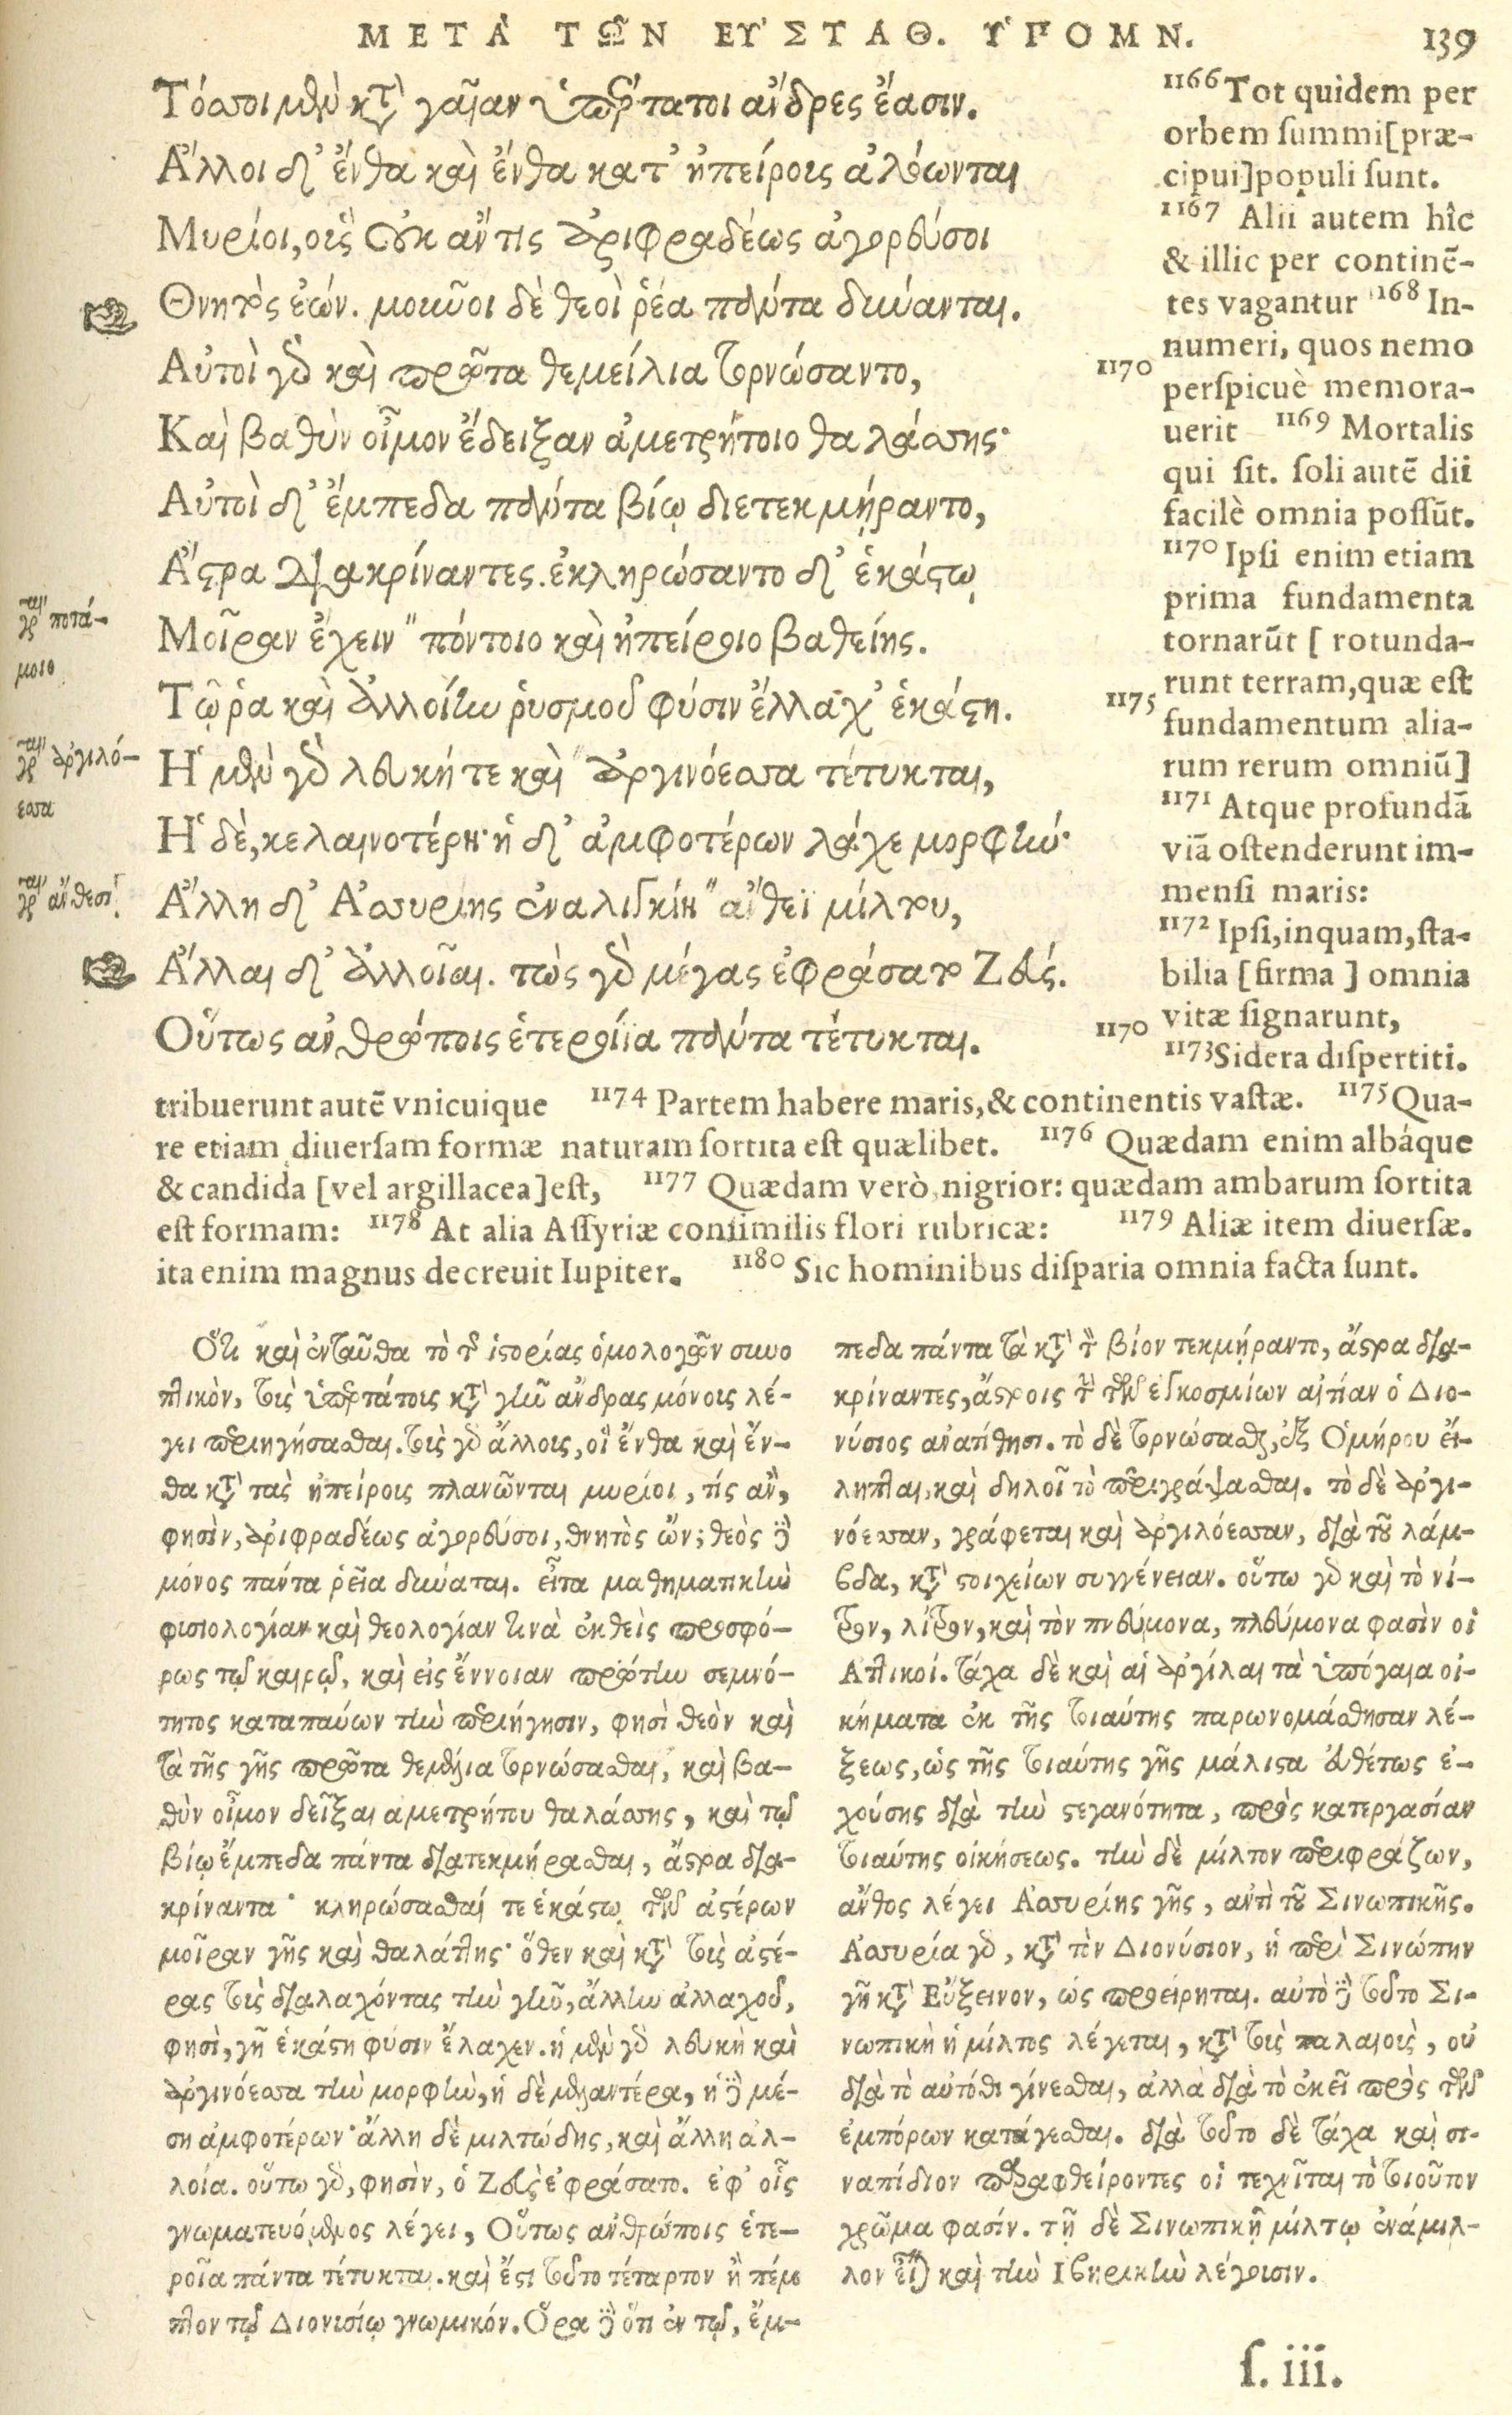 ΜΕΤᾺ ΤΩ͂Ν ΕΥ̓ΣΤΑΘ. ὙΠΟΜΝ. 139
Τόσσοι μὲν κτ̀ γαῖαν ὑπέρτατοι ἄνδρες ἔασιν.
Ἄλλοι δ' ἔνθα καὶ ἔνθα κατ' ἠπείροις ἀλόωνται
Μυρίοι, οἳς οὐκ ἄν τις ἀριφραδέως ἀγορεύσοι
Θνητὸς ἐών. μοιῦοι δὲ θεοὶ ῥέα πάντα δύνανται.
Αὐτοὶ γὸ καὶ πρῶτα θεμείλια τορνώσαντο,
1170
Καὶ βαθὺν οἶμον ἔδειξαν ἀμετρήτοιο θαλάσσης·
Αὐτοὶ δ' ἔμπεδα πάντα βίῳ διετεκμήραντο,
Ἄστρα διακρίναντες. ἐκληρώσαντο δ' ἑκάστῳ
γρ ποτά-
μοιο
Μοῖραν ἔχειν" πόντοιο καὶ ἠπείροιο βαθείης.
Τῷ ῥα καὶ ἀλλοίην ῥυσμοῦ φύσιν ἔλλαχ' ἑκάστη.
1175
γρ ἀργιλό-
εσσα
Ἡ μὲν γὸ λευκή τε καὶ "ἀργινόεσσα τέτυκται,
Ἡ δὲ, κελαινοτέρη· ἡ δ' ἀμφοτέρων λάχε μορφήν·
γρ ἄνθεσι
Ἄλλη δ' Ἀσσυρίης ἐναλιγκίη "ἄνθεϊ μίλτου,
Ἄλλαι δ' ἀλλοῖαι. τὼς γὸ μέγας ἐφράσατο Ζεύς.
Οὕτως ἀνθρώποις ἑτεροίια πάντα τέτυκται.
1170
1166 Tot quidem per
orbem summi [præ-
cipui] populi sunt.
1167 Alii autem hîc
& illic per continẽ-
tes vagantur 1168 In-
numeri, quos nemo
perspicuè memora-
uerit 1169 Mortalis
qui sit. soli autẽ dii
facilè omnia possũt.
1170 Ipsi enim etiam
prima fundamenta
tornarũt [ rotunda-
runt terram, quæ est
fundamentum alia-
rum rerum omniũ]
1171 Atque profundã
viã ostenderunt im-
mensi maris:
1172 Ipsi, inquam, sta-
bilia [firma ] omnia
vitæ signarunt,
1173 Sidera dispertiti.
tribuerunt autẽ vnicuique 1174 Partem habere maris, & continentis vastæ. 1175 Qua-
re etiam diuersam formæ naturam sortita est quælibet. 1176 Quædam enim albáque
& candida [vel argillacea] est, 1177 Quædam verò nigrior: quædam ambarum sortita
est formam: 1178 At alia Assyriæ consimilis flori rubricæ: 1179 Aliæ item diuersæ.
ita enim magnus decreuit Iupiter. 1180 Sic hominibus disparia omnia facta sunt.
Ὅτι καὶ ἐνταῦθα τὸ τῆς ἱστορίας ὁμολογῶν συνο
πτικὸν, τοὺς ὑπερτάτοις κτ̀ γῆν ἄνδρας μόνοις λέ-
γει περιηγήσασθαι. τοὺς γὸ ἄλλοις, οἳ ἔνθα καὶ ἔν-
θα κτ̀ τὰς ἠπείροις πλανῶνται μυρίοι, τίς ἂν,
φησὶν, ἀριφραδέως ἀγορεύσοι, θνητὸς ὤν; θεὸς δὲ
μόνος πάντα ῥεῖα δύναται. εἶτα μαθηματικὴν
φισιολογίαν καὶ θεολογίαν τινὰ ἐκθεὶς προσφό-
ρως τῷ καιρῷ, καὶ εἰς ἔννοιαν πρώτην σεμνό-
τητος καταπαύων τὴν περιήγησιν, φησὶ θεὸν καὶ
τὰ τῆς γῆς πρῶτα θεμέλια τορνώσασθαι, καὶ βα-
θὺν οἶμον δεῖξαι αμετρήτου θαλάσσης, καὶ τῷ
βίῳ ἔμπεδα πάντα διατεκμήρασθαι, ἄστρα δια-
κρίναντα· κληρώσασθαί τε ἑκάστῳ τῶν ἀστέρων
μοῖραν γῆς καὶ θαλάττης· ὅθεν καὶ κτ̀ τοὺς ἀστέ-
ρας τοὺς διαλαχόντας τὴν γῆν, ἄλλην ἀλλαχοῦ,
φησὶ, γῆ ἑκάστη φύσιν ἔλαχεν. ἡ μὲν γὸ λευκὴ καὶ
ἀργινόεσσα τὴν μορφὴν, ἡ δὲ μελαντέρα, ἡ δὲ μέ-
ση ἀμφοτέρων· ἄλλη δὲ μιλτώδης, καὶ ἄλλη ἀλ-
λοία. οὕτω γὸ, φησὶν, ὁ Ζεὺς ἐφράσατο. ἐφ' οἷς
γνωματευόμενος λέγει, Οὕτως ἀνθρώποις ἑτε-
ροῖα πάντα τέτυκται. καὶ ἔστι τοῦτο τέταρτον ἢ πέμ
πτον τῷ Διονισίῳ γνωμικόν. Ὅρα δὲ ὅτι ἐν τῷ, ἔμ-
πεδα πάντα τὰ κτ̀ τὸν βίον τεκμήραντο, ἄστρα δια-
κρίναντες, ἄστροις τὴν τῶν ἐγκοσμίων αἰτίαν ὁ Διο-
νύσιος ἀνατίθησι. τὸ δὲ τορνώσασθαι, ἐξ Ὁμήρου εἴ-
ληπται, καὶ δηλοῖ τὸ περιγράψασθαι. τὸ δὲ ἀργι-
νόεσσαν, γράφεται καὶ ἀργιλόεσσαν, διὰ τοῦ λάμ-
βδα, κτ̀ στοιχείων συγγένειαν. οὕτω γὸ καὶ τὸ νί-
τρον, λίτρον, καὶ τὸν πνεύμονα, πλεύμονα φασὶν οἱ
Αττικοί. τάχα δὲ καὶ αἱ ἀργίλαι τὰ ὑπόγαια οἰ-
κήματα ἐκ τῆς τοιαύτης παρωνομάσθησαν λέ-
ξεως, ὡς τῆς τοιαύτης γῆς μάλιστα εὐθέτως ἐ-
χούσης διὰ τὴν στεγανότητα, πρὸς κατεργασίαν
τοιαύτης οἰκήσεως. τὴν δὲ μίλτον περιφράζων,
ἄνθος λέγει Ἀσσυρίης γῆς, ἀντὶ τοῦ Σινωπικῆς.
Ἀσσυρία γὸ, κτ̀ τὸν Διονύσιον, ἡ περὶ Σινώπην
γῆ κτ̀ Εὔξεινον, ὡς προείρηται. αὐτὸ δὲ τοῦτο Σι-
νωπικὴ ἡ μίλτος λέγεται, κτ̀ τοὺς παλαιοὺς, οὐ
διὰ τὸ αὐτόθι γίνεσθαι, ἀλλὰ διὰ τὸ ἐκεῖ πρὸς τῶν
ἐμπόρων κατάγεσθαι. διὰ τοῦτο δὲ τάχα καὶ σι-
ναπίδιον παραφθείροντες οἱ τεχνῖται τὸ τοιοῦτον
χρῶμα φασίν. τῇ δὲ Σινωπικῇ μίλτῳ ἐνάμιλ-
λον εἶναι καὶ τὴν Ιβηρικὴν λέγουσιν.
ſ. iii.